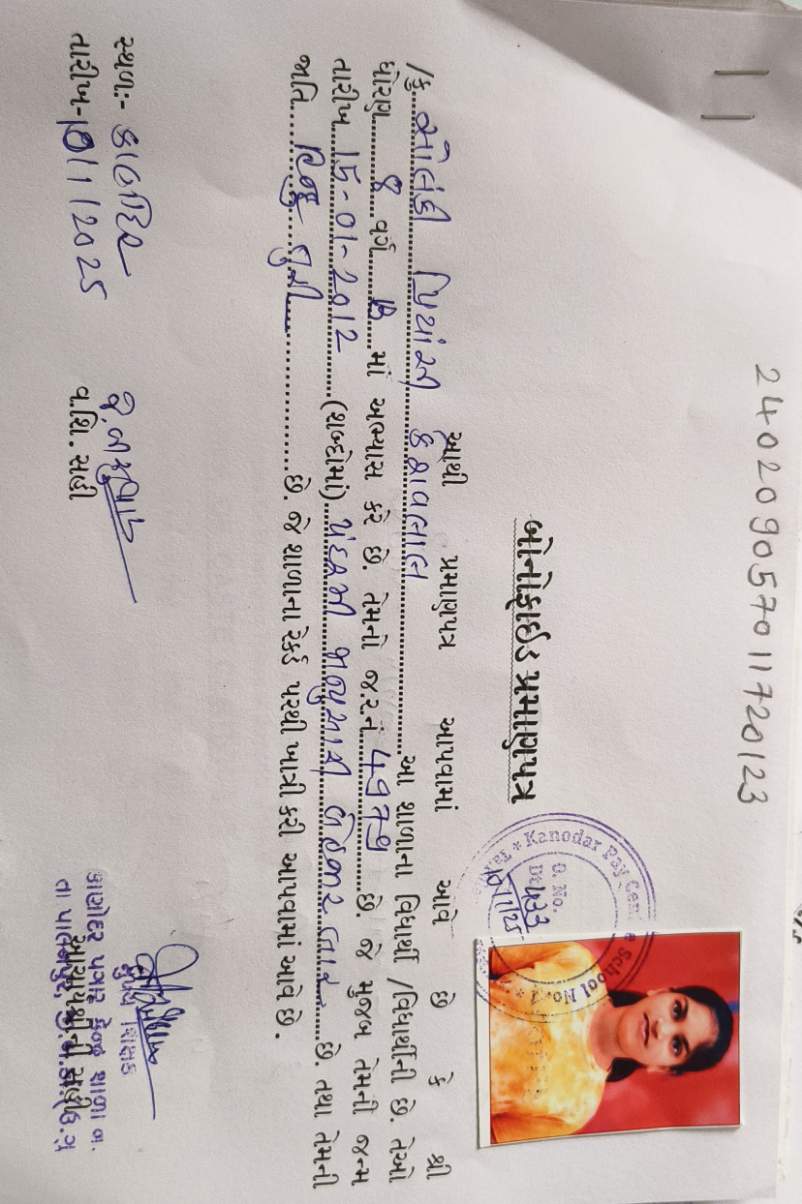 240209057011720123
બોનોફાઈડ પ્રમાણપત્ર
આથી પ્રમાણપત્ર આપવામાં આવે છે કે શ્રી
/કુ. સોલંકી પ્રિયાંસી કેશવલાલ આ શાળાના વિદ્યાર્થી /વિદ્યાર્થીની છે. તેઓ
ધોરણ 8 વર્ગ B માં અભ્યાસ કરે છે. તેમનો જ.ર.નં. 4979 છે. જે મુજબ તેમની જન્મ
તારીખ 15-01-2012 (શબ્દોમાં) પંદરમી જાન્યુઆરી બેહજાર બાર છે. તથા તેમની
જાતિ હિન્દુ છે. જે શાળાના રેકર્ડ પરથી ખાત્રી કરી આપવામાં આવે છે.
સ્થળ:- કાણોદર
તારીખ-10/1/2025
વ.શિ. સહી
મુખ્ય શિક્ષક
કાણોદર પગાર કેન્દ્ર શાળા નં.
આચાર્યશ્રીની સહી
તા પાલનપુર, જી.બ.કાં.(ઉ.ગુ
Kanodar Pay Cen e School No.
O. No. 423
Dt. 10/1/25